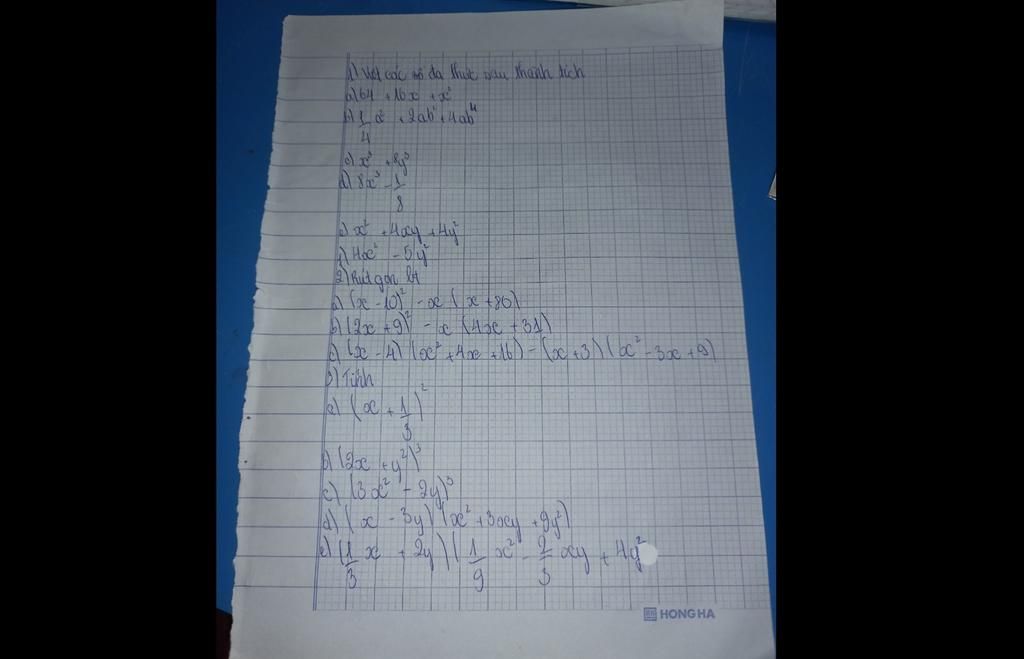 1) Viết các số đa thức sau thành tích
a) 64 + 16x + x²
b) 1/4 a² + 2ab² + 4ab⁴
c) x³ + 8y³
d) 8x³ - 1/8
e) x² + 4xy + 4y²
f) 4x² - 5y²
2) Rút gọn bt
a) (x - 10)² - x (x + 80)
b) (2x + 9)² - x (4x + 31)
c) (x - 4) (x² + 4x + 16) - (x + 3) (x² - 3x + 9)
3) Tính
a) (x + 1/3)²
b) (2x + y²)³
c) (3x² - 2y)³
d) (x - 3y) (x² + 3xy + 9y²)
e) (1/3 x + 2y) (1/9 x² - 2/3 xy + 4y²
HONG HA